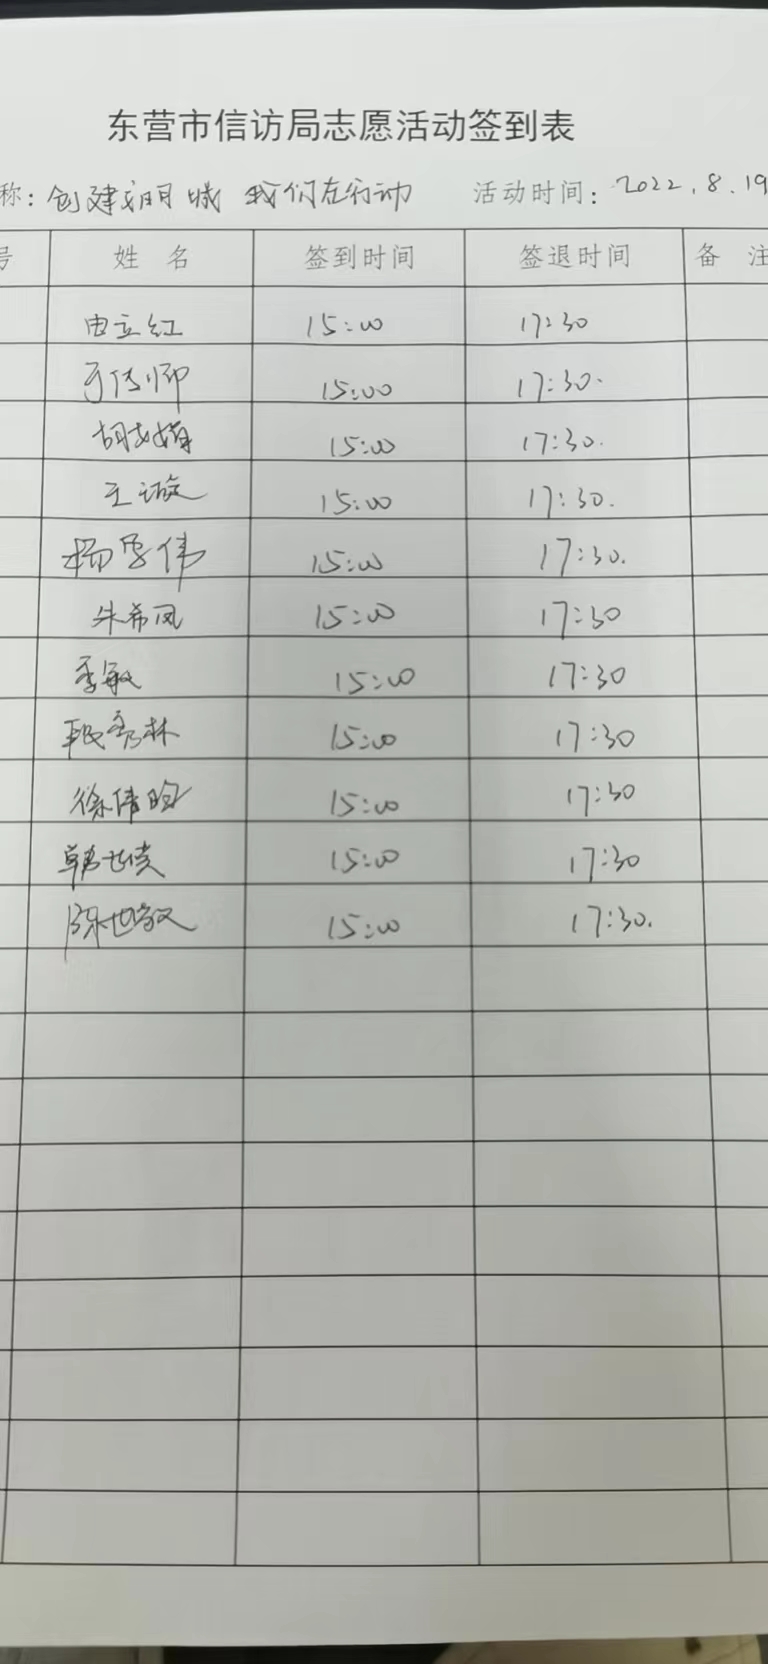 东营市信访局志愿活动签到表
称：创建文明城 我们在行动 活动时间：2022.8.19
号 姓名 签到时间 签退时间 备注
由立红 15:00 17:30
于传卿 15:00 17:30.
胡 娟 15:00 17:30.
王 15:00 17:30.
杨学伟 15:00 17:30.
朱希凤 15:00 17:30
季敏 15:00 17:30
林 15:00 17:30
徐倩 15:00 17:30
韩世 15:00 17:30
陈世敏 15:00 17:30.